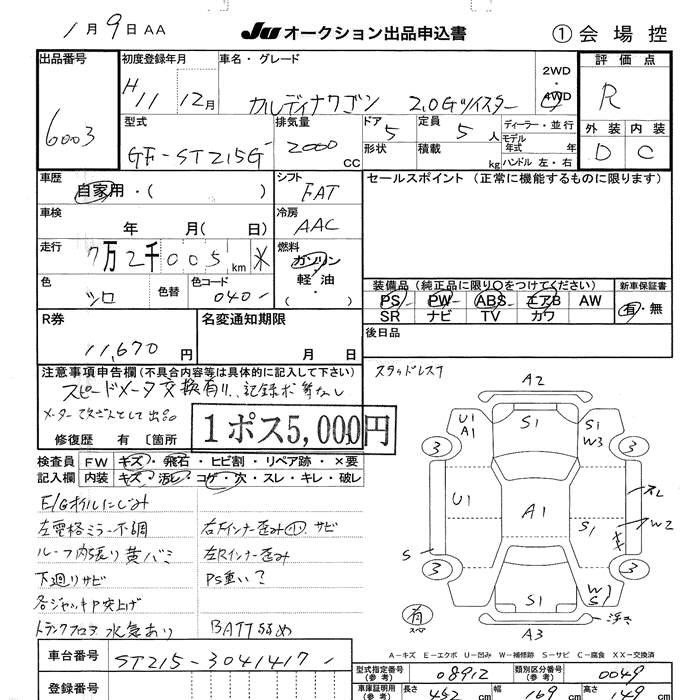 1月9日 AA
JU オークション出品申込書
① 会場控
出品番号
6003
初度登録年月
H11 12月
車名・グレード
カルディナワゴン 2.0Gツイスター
2WD
・
4WD
評価点
R
外装 内装
D C
型式
GF-ST215G
排気量
2000 cc
ドア 5
形状
定員 5 人
積載 kg
ディーラー・並行
モデル年式 年
ハンドル 左・右
車歴
自家用・( )
シフト
FAT
セールスポイント (正常に機能するものに限ります)
車検
年 月( 日)
冷房
AAC
走行
7万2千005 km ※
燃料
ガソリン
軽油
( ・ )
色
シロ
色替
色コード
040
装備品 (純正品に限り○をつけてください)
新車保証書
PS PW ABS エアB AW
有・無
SR ナビ TV カワ
R券
11,670 円
名変通知期限
月 日
後日品
スタッドレス
注意事項申告欄 (不具合内容等は具体的に記入して下さい)
スピードメータ交換有り、記録ボ等なし
メーター改ざんとして出品
修復歴 有 〔箇所
1ポス5,000円
検査員
記入欄
FW キズ・飛石・ヒビ割・リペア跡・×要
内装 キズ・汚レ・コゲ・穴・スレ・キレ・破レ
E/Gオイルにじみ
左電格ミラー不調
ルーフ内張り黄バミ
下廻りサビ
各ジャッキP突上げ
トランクフロア水気あり
右Fインナー歪み小サビ
左Rインナー歪み
PS重い?
BATT弱め
A2
U1
A1
S1
S1
W3
3
3
U1
A1
S1
スレ
W2
S
3
3
S1
W
S
有
スペア
浮き
A3
A-キズ E-エクボ U-凹み W-補修跡 S-サビ C-腐食 XX-交換済
車台番号
ST215-3041417
登録番号
型式指定番号
(参考)
08912
類別区分番号
(参考)
0049
車庫証明用
(参考)
長さ 452 cm
幅 169 cm
高さ 149 cm